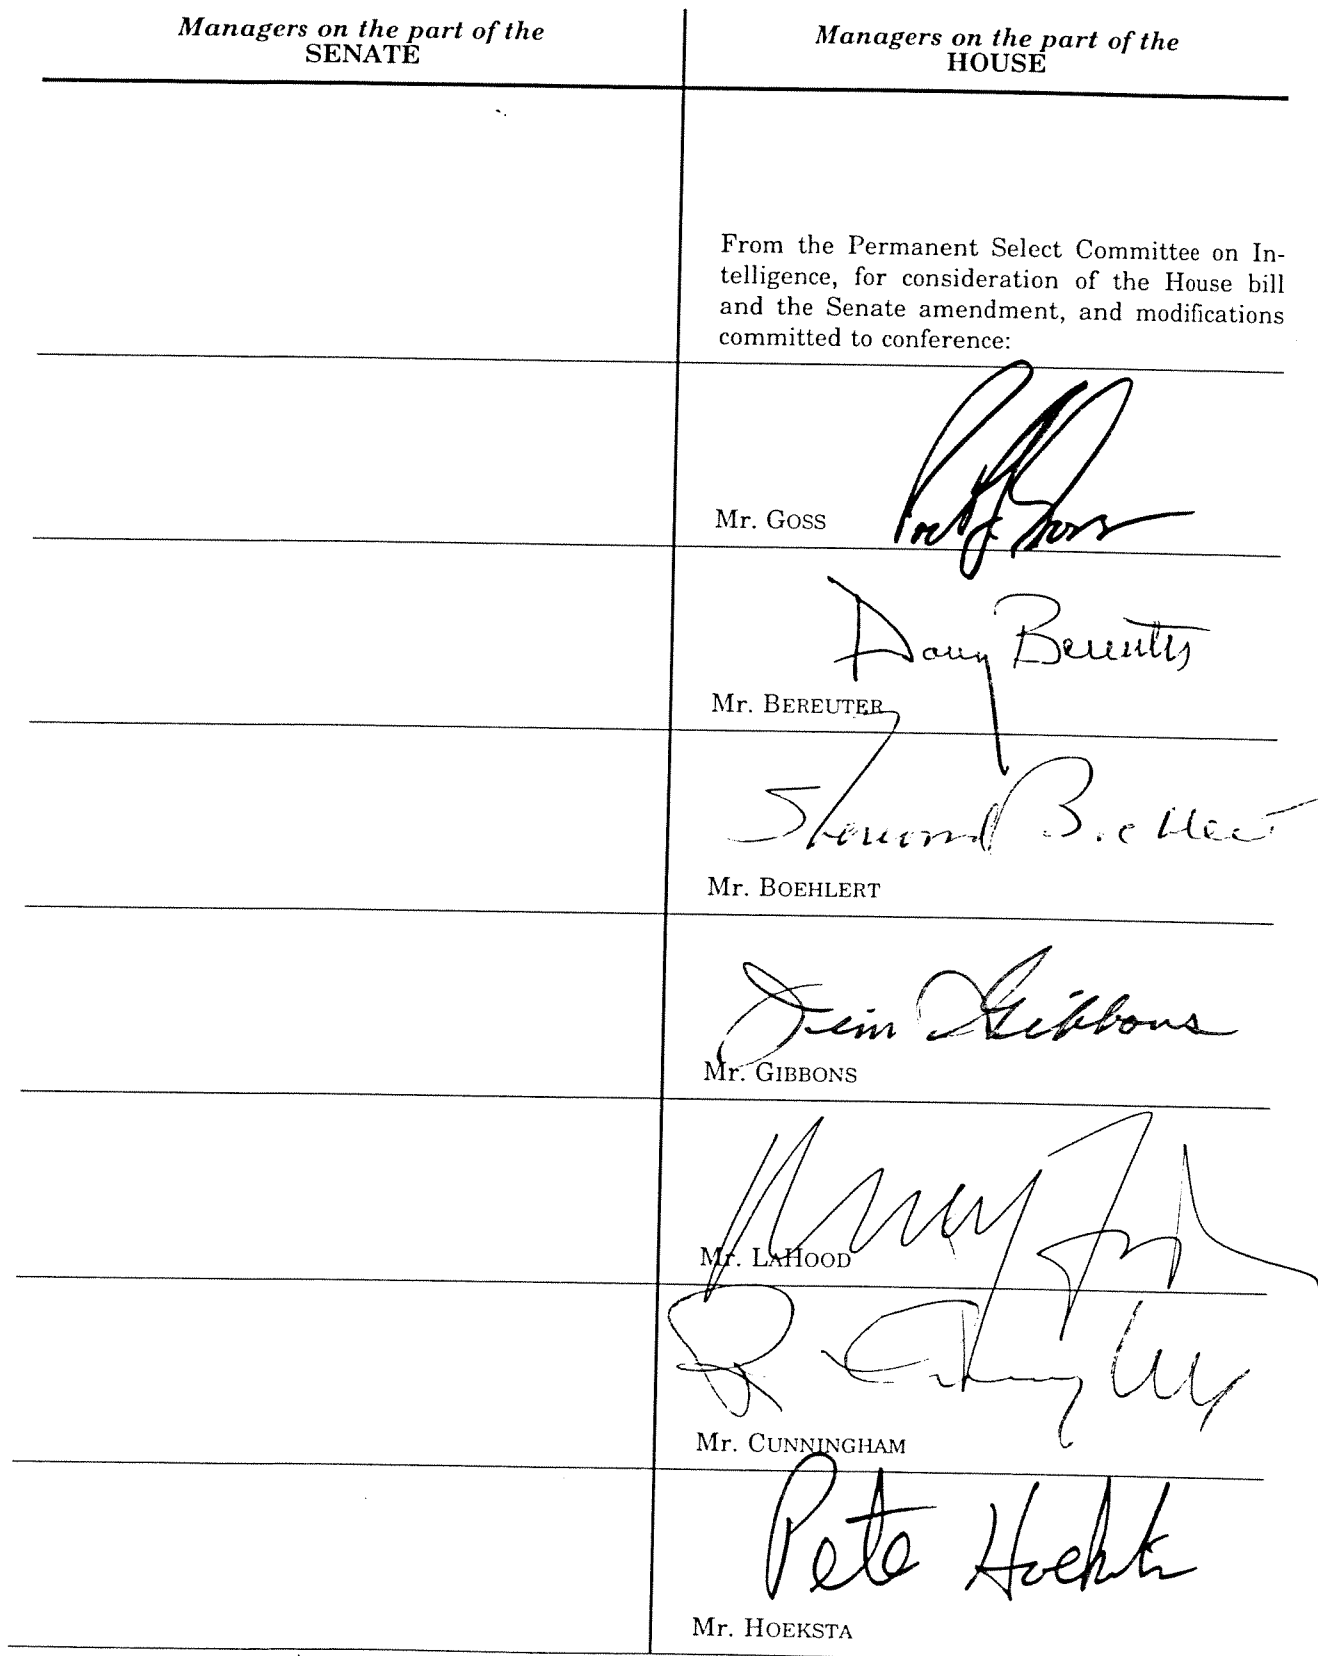 Managers on the part of the
SENATE
Managers on the part of the
HOUSE
From the Permanent Select Committee on In-
telligence, for consideration of the House bill
and the Senate amendment, and modifications
committed to conference:
Mr. GOSS
Doug Bereuter
Mr. BEREUTER
Sherwood Boehlert
Mr. BOEHLERT
Jim Gibbons
Mr. GIBBONS
Mr. LAHOOD
Mr. CUNNINGHAM
Pete Hoekstra
Mr. HOEKSTA